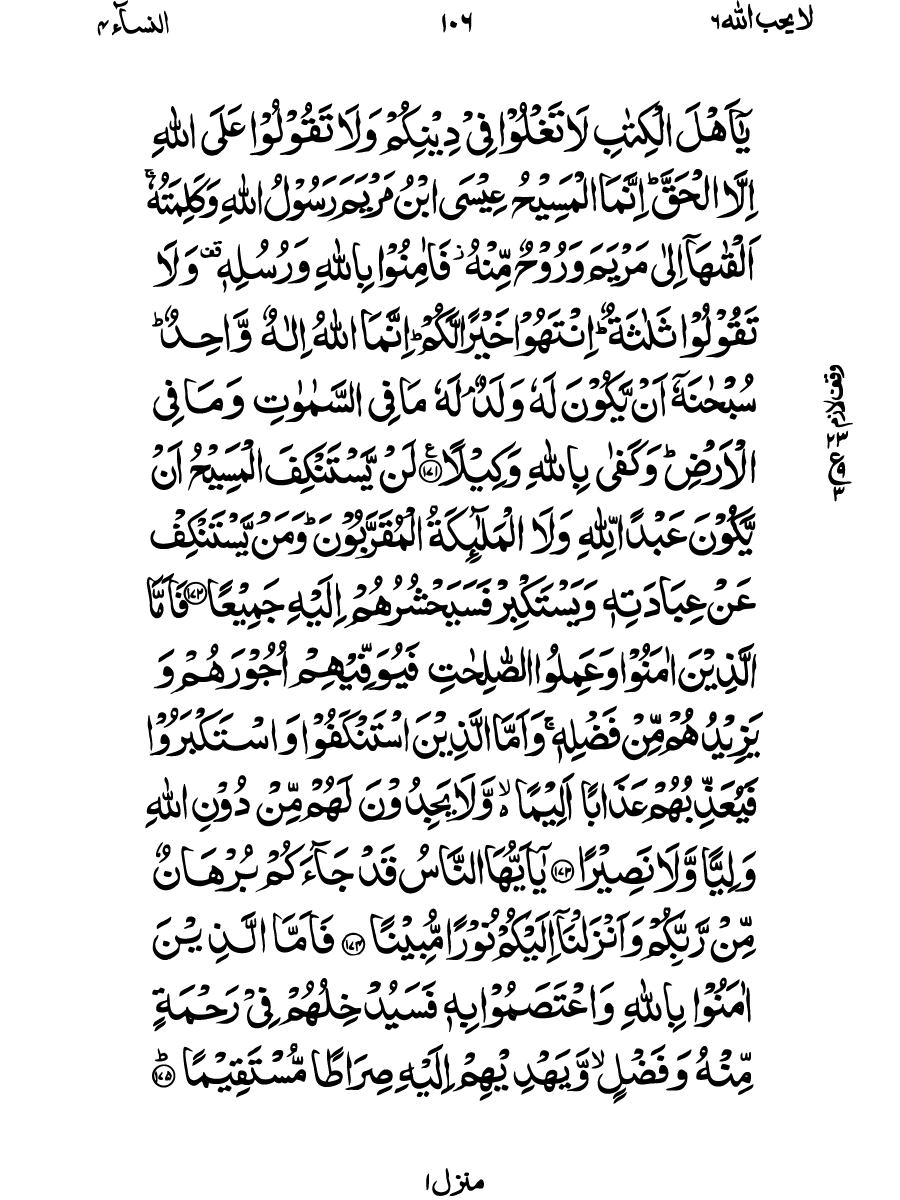 لا یحب الله ٦
١٠٦
النسآء ٤
يٰٓاَهْلَ الْكِتٰبِ لَا تَغْلُوْا فِيْ دِيْنِكُمْ وَلَا تَقُوْلُوْا عَلَى اللّٰهِ
اِلَّا الْحَقَّ ؕ اِنَّمَا الْمَسِيْحُ عِيْسَى ابْنُ مَرْيَمَ رَسُوْلُ اللّٰهِ وَكَلِمَتُهٗ ۚ
اَلْقٰىهَاۤ اِلٰى مَرْيَمَ وَرُوْحٌ مِّنْهُ ؗ فَاٰمِنُوْا بِاللّٰهِ وَرُسُلِهٖ ۫ وَلَا
تَقُوْلُوْا ثَلٰثَةٌ ؕ اِنْتَهُوْا خَيْرًا لَّكُمْ ؕ اِنَّمَا اللّٰهُ اِلٰهٌ وَّاحِدٌ ؕ
سُبْحٰنَهٗۤ اَنْ يَّكُوْنَ لَهٗ وَلَدٌ ۘ لَهٗ مَا فِي السَّمٰوٰتِ وَمَا فِي
الْاَرْضِ ؕ وَكَفٰى بِاللّٰهِ وَكِيْلًا ﴿١٧١﴾ لَنْ يَّسْتَنْكِفَ الْمَسِيْحُ اَنْ
يَّكُوْنَ عَبْدًا لِّلّٰهِ وَلَا الْمَلٰٓئِكَةُ الْمُقَرَّبُوْنَ ؕ وَمَنْ يَّسْتَنْكِفْ
عَنْ عِبَادَتِهٖ وَيَسْتَكْبِرْ فَسَيَحْشُرُهُمْ اِلَيْهِ جَمِيْعًا ﴿١٧٢﴾ فَاَمَّا
الَّذِيْنَ اٰمَنُوْا وَعَمِلُوا الصّٰلِحٰتِ فَيُوَفِّيْهِمْ اُجُوْرَهُمْ وَ
يَزِيْدُهُمْ مِّنْ فَضْلِهٖ ۚ وَاَمَّا الَّذِيْنَ اسْتَنْكَفُوْا وَاسْتَكْبَرُوْا
فَيُعَذِّبُهُمْ عَذَابًا اَلِيْمًا ۙ۬ وَّلَا يَجِدُوْنَ لَهُمْ مِّنْ دُوْنِ اللّٰهِ
وَلِيًّا وَّلَا نَصِيْرًا ﴿١٧٣﴾ يٰۤاَيُّهَا النَّاسُ قَدْ جَآءَكُمْ بُرْهَانٌ
مِّنْ رَّبِّكُمْ وَاَنْزَلْنَاۤ اِلَيْكُمْ نُوْرًا مُّبِيْنًا ﴿١٧٤﴾ فَاَمَّا الَّذِيْنَ
اٰمَنُوْا بِاللّٰهِ وَاعْتَصَمُوْا بِهٖ فَسَيُدْخِلُهُمْ فِيْ رَحْمَةٍ
مِّنْهُ وَفَضْلٍ ۙ وَّيَهْدِيْهِمْ اِلَيْهِ صِرَاطًا مُّسْتَقِيْمًا ؕ ﴿١٧٥﴾
وقف لازم
منزل ١